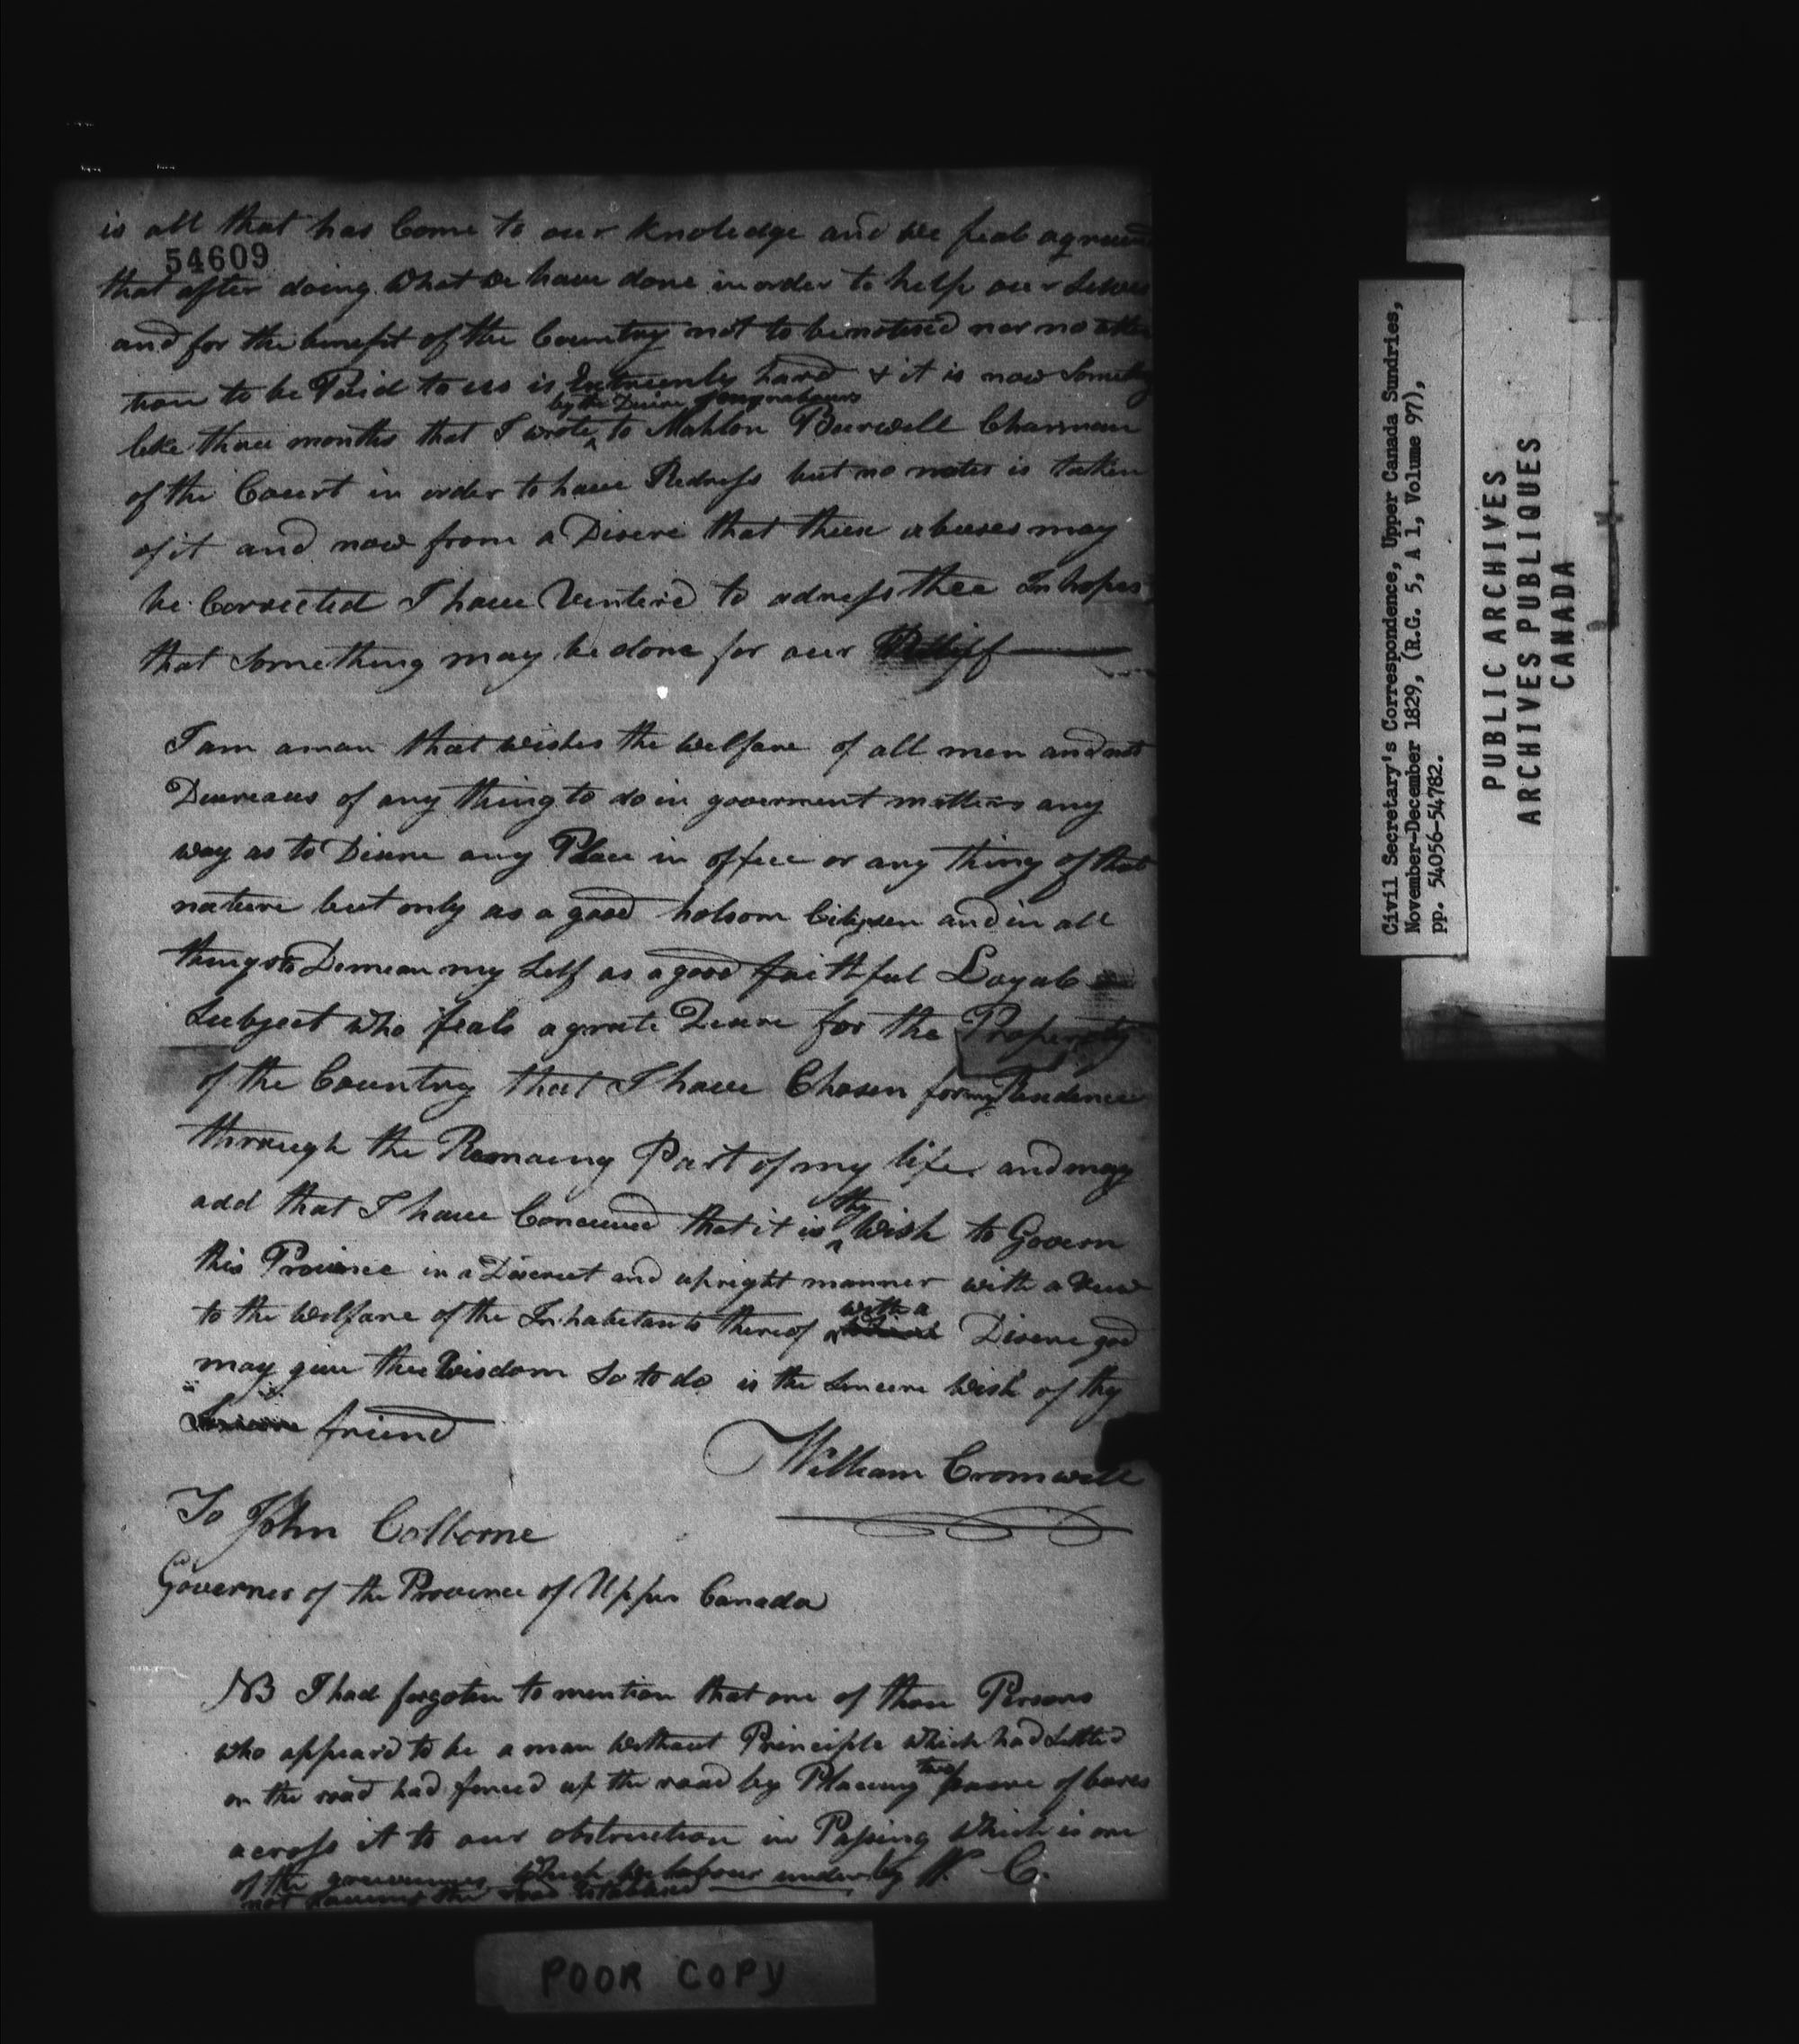 is all that has Come to our knoledge and we feal agreaved
54609
that after doing what we have done in order to help our Selves
and for the benefit of the Country not to be notised nor no atten
tion to be Paid to us is Extreemly hard & it is now Something
by the Desire of my nabours
like three months that I wrote ^ to Mahlon Burwell Charman
of the Court in order to have Redress but no notis is taken
of it and now from a Disire that these abuses may
be Corrected I have Venterd to adress thee In hopes
that Something may be done for our Reliff
I am a man that wishes the welfare of all men and not
Desireaus of any thing to do in goverment matters any
way as to Disire any Place in office or any thing of that
nature but only as a good holsom Citizen and in all
things to Demean my Self as a good faithful Loyal
Subject who feals a grate Desire for the Prosperity
of the Country that I have Chosen for my Residence
through the Remaing Part of my life and may
add that I have Conceived that it is ^ thy Wish to Govern
this Province in a Discreet and upright manner with a View
to the Welfare of the Inhabetants thereof ^ with a Disire god
may give thee Wisdom So to do is the Sincere Wish of thy
Sincere friend
William Cromwell
To John Colborne
Governer of the Province of Upper Canada
NB I had forgoten to mention that one of those Persons
who appeard to be a man Without Principle Which had Settled
on the road had fenced up the road by Placing two pare of bares
across it to our obstruction in Passing Which is one
of the greivences Which we labour under by W. C.
not haveing the road Establised
Civil Secretary's Correspondence, Upper Canada Sundries,
November-December 1829, (R.G. 5, A 1, Volume 97),
pp. 54056-54782.
PUBLIC ARCHIVES
ARCHIVES PUBLIQUES
CANADA
POOR COPY